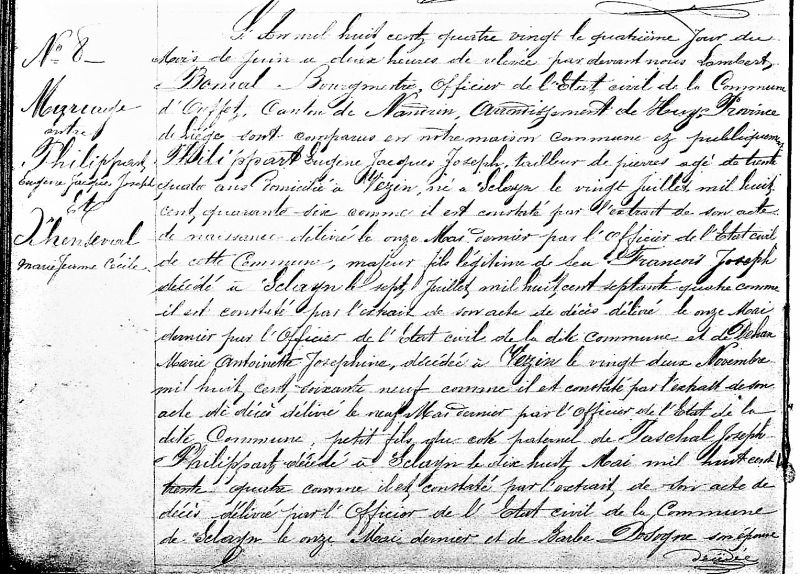 N° 8
Mariage
entre
Philippart,
Eugène Jacques Joseph
Et
Thendeval
Marie Jeanne Cécile.
L'an mil huit cent quatre vingt le quatrième jour du
Mois de Juin a deux heures de relevée par devant nous Lambert,
Bonsal Bourgmestre, Officier de l'Etat civil de la Commune
d'Ouffet, Canton de Nandrin, Arrondissement de Huy, Province
de Liége sont comparus en notre maison commune et publiquement
Philippart Eugène Jacques Joseph, tailleur de pierres agé de trente
quatre ans Domicilié à Vezin, né a Sclayn le vingt Juillet mil huit
cent, quarante six comme il est constaté par l'extrait de son acte
de naissance délivré le onze Mai dernier par l'Officier de l'Etat civil
de cette Commune, majeur fils légitime de feu François Joseph
décédé à Sclayn le sept Juillet mil huit cent septante quatre comme
il est constaté par l'extrait de son acte de décès délivré le onze Mai
dernier par l'Officier de l'Etat civil de la dite commune et de Dehan
Marie Antoinette Josephine, décédée à Vezin le vingt deux Novembre
mil huit, cent, soixante neuf comme il est constaté par l'extrait de son
acte de décès délivré le neuf Mai dernier par l'Officier de l'Etat de la
dite Commune, petit fils du coté paternel de Paschal Joseph
Philippart, décédé à Sclayn le dix huit Mai mil huit cent
trente quatre comme il est constaté par l'extrait, de son acte de
décès délivré par l'Officier de l'Etat civil de la Commune
de Sclayn le onze Mai dernier et de Barbe Dosogne son épouse
décédée